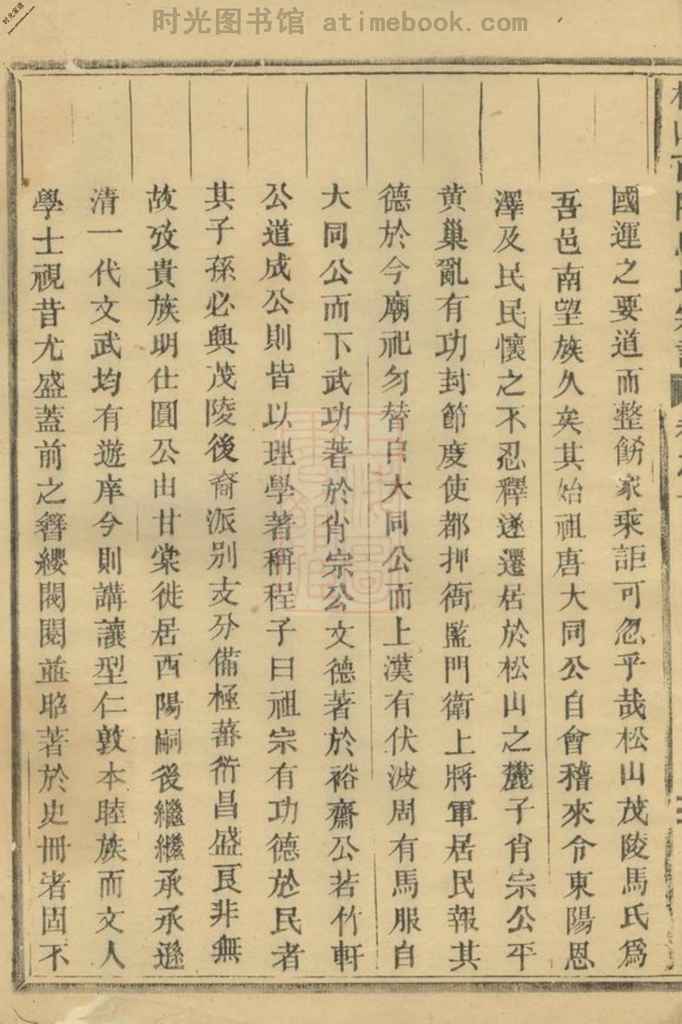 时光图书馆 atimebook.com
國運之要道而整飭家乘詎可忽乎哉松山茂陵馬氏為
吾邑南望族久矣其始祖唐大同公自會稽來令東陽恩
澤及民民懷之不忍釋遂遷居於松山之麓子肖宗公平
黃巢亂有功封節度使都押衙監門衛上將軍居民報其
德於今廟祀勿替自大同公而上漢有伏波周有馬服自
大同公而下武功著於肖宗公文德著於裕齋公若竹軒
公道成公則皆以理學著稱程子曰祖宗有功德於民者
其子孫必興茂陵後裔派別支分備極蕃衍昌盛良非無
故攷貴族明仕圓公由甘棠徙居西陽嗣後繼繼承承遜
清一代文武均有遊庠今則講讓型仁敦本睦族而文人
學士視昔尤盛蓋前之簪纓閥閱並昭著於史冊者固不